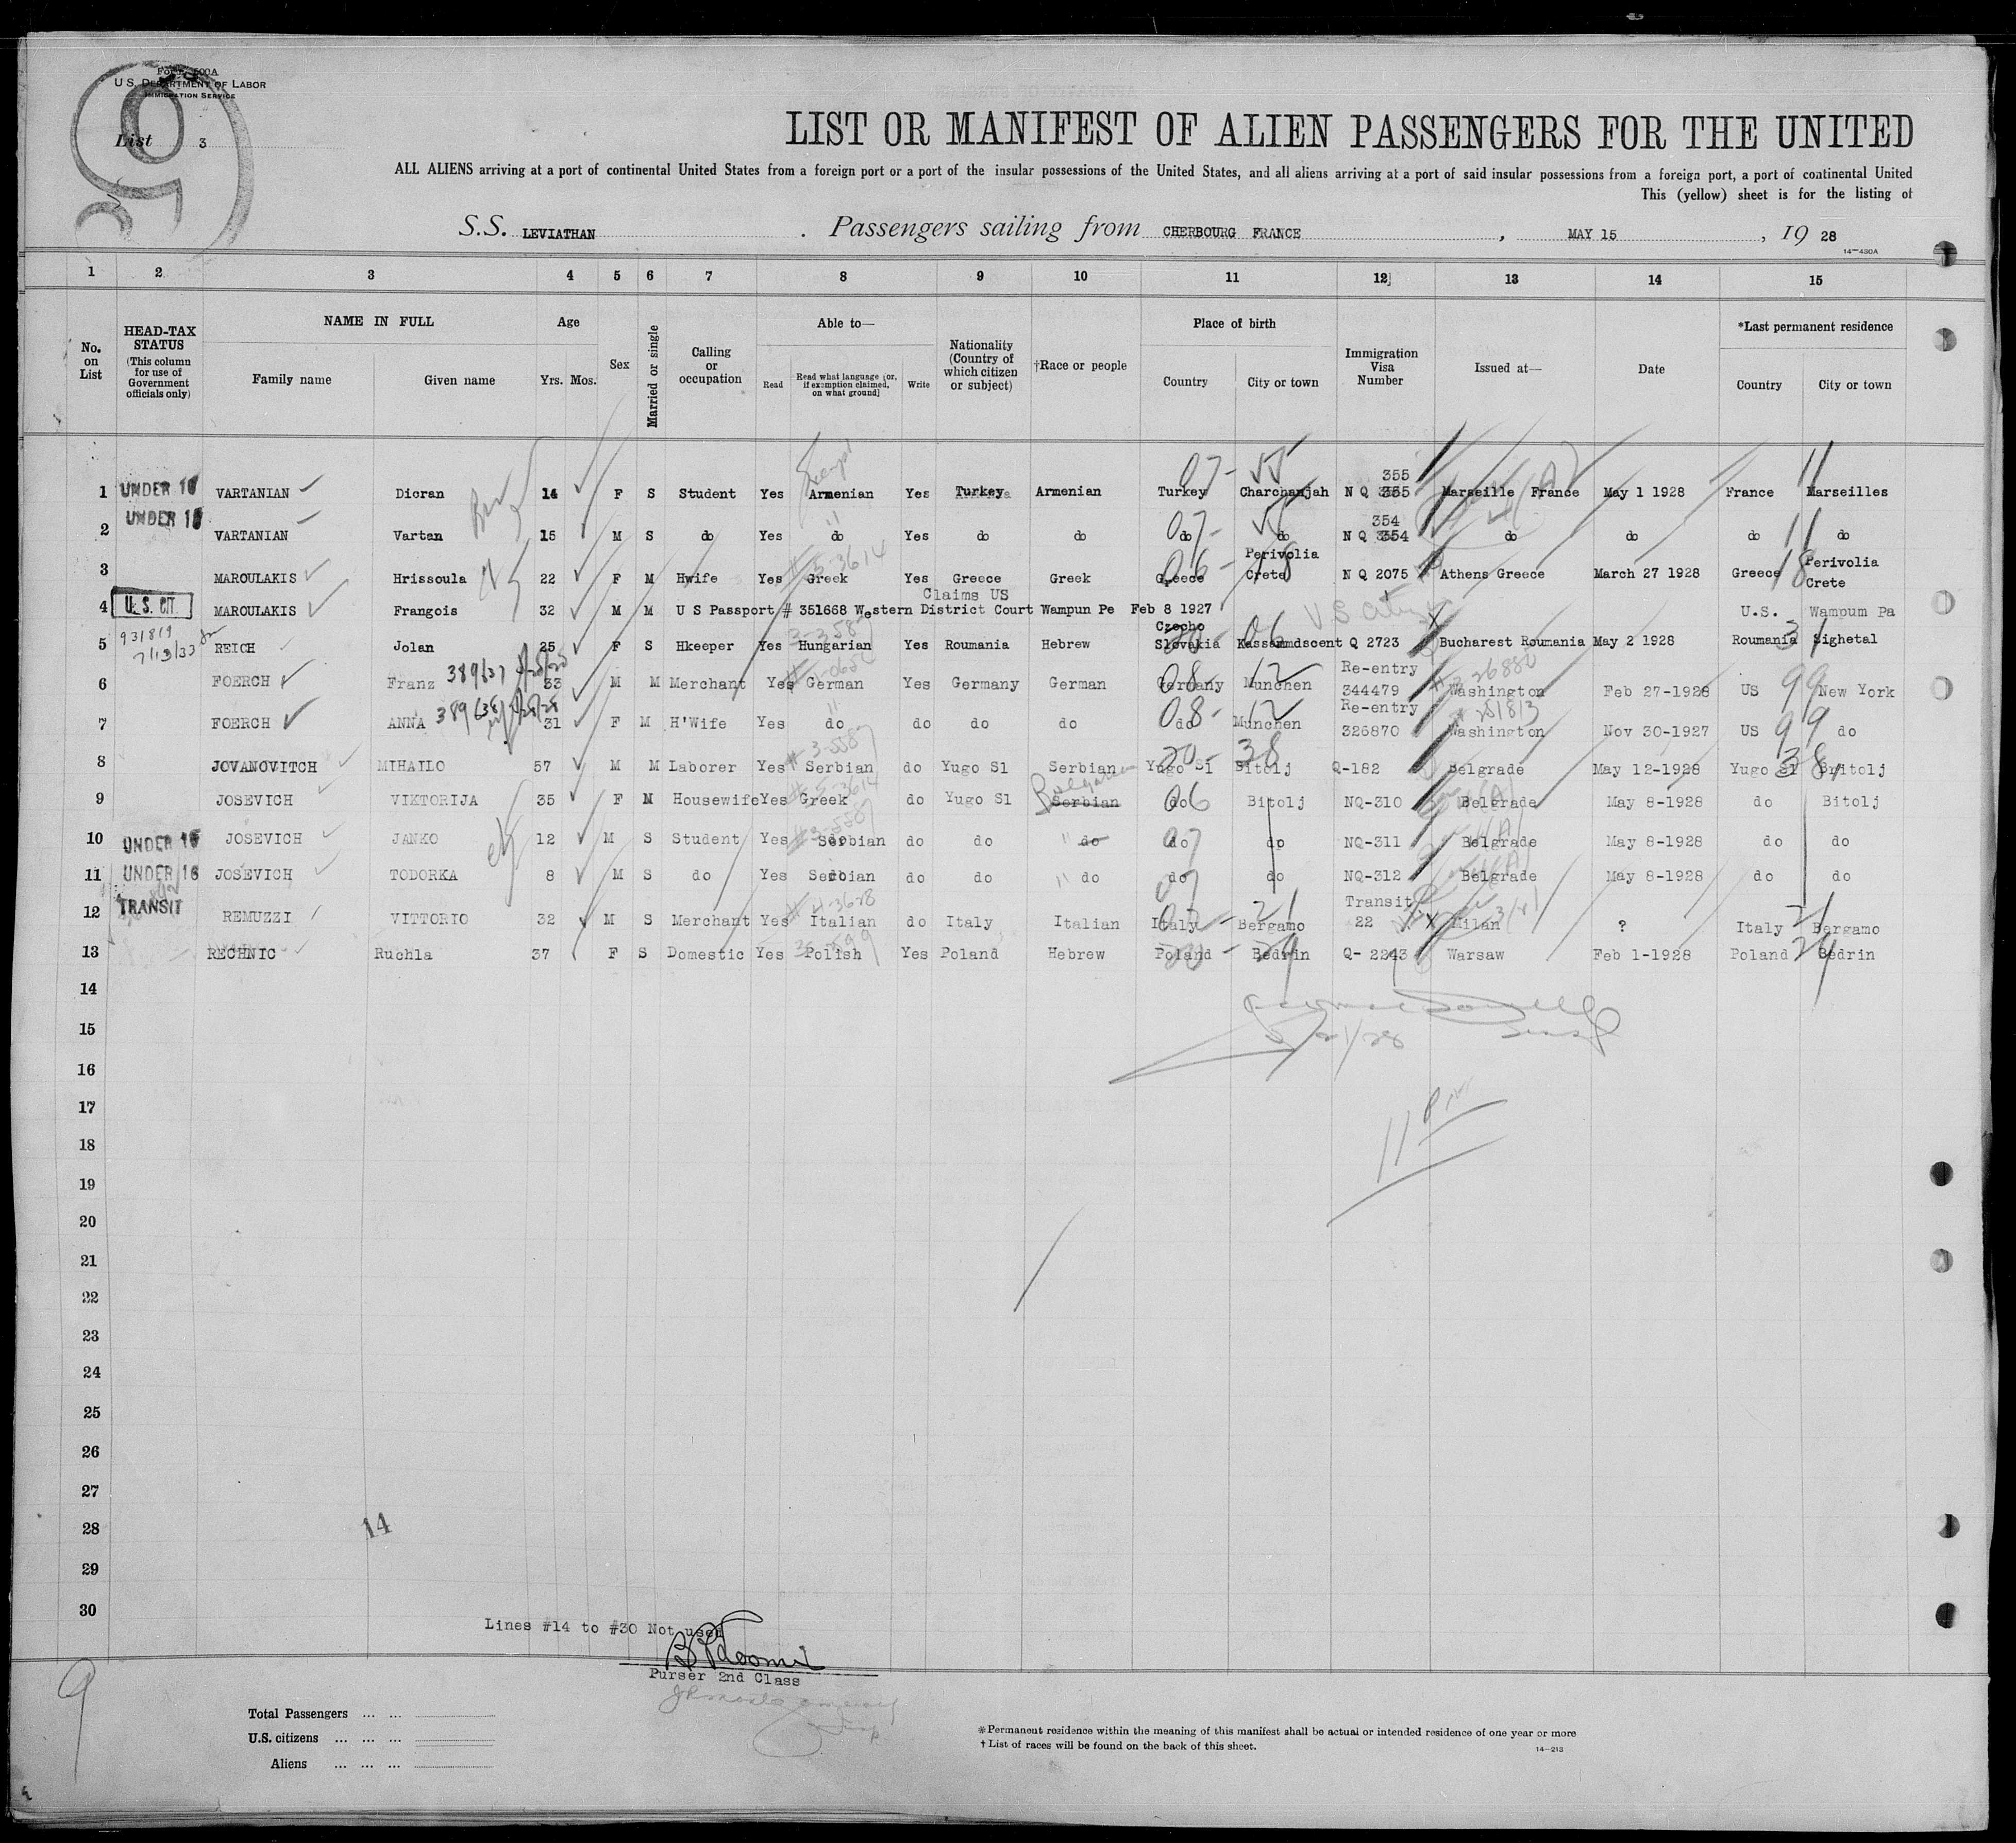 Form 500A
U.S. DEPARTMENT OF LABOR
IMMIGRATION SERVICE
List 3
LIST OR MANIFEST OF ALIEN PASSENGERS FOR THE UNITED
ALL ALIENS arriving at a port of continental United States from a foreign port or a port of the insular possessions of the United States, and all aliens arriving at a port of said insular possessions from a foreign port, a port of continental United
This (yellow) sheet is for the listing of
S.S. LEVIATHAN . Passengers sailing from CHERBOURG FRANCE , MAY 15 , 19 28
14—430A
1 2 3 4 5 6 7 8 9 10 11 12 13 14 15
No. on List
HEAD-TAX STATUS
(This column for use of Government officials only)
NAME IN FULL
Family name Given name
Age
Yrs. Mos.
Sex
Married or single
Calling or occupation
Able to—
Read Read what language [or, if exemption claimed, on what ground] Write
Nationality (Country of which citizen or subject)
†Race or people
Place of birth
Country City or town
Immigration Visa Number
Issued at—
Date
*Last permanent residence
Country City or town
355
1 UNDER 16 VARTANIAN Dicran 14 F S Student Yes Armenian Yes Turkey Armenian Turkey Charchanjah N Q 355 Marseille France May 1 1928 France Marseilles
354
2 UNDER 16 VARTANIAN Vartan 15 M S do Yes do Yes do do do do N Q 354 do do do do
3 MAROULAKIS Hrissoula 22 F M Hwife Yes Greek Yes Greece Greek Greece Perivolia Crete N Q 2075 Athens Greece March 27 1928 Greece Perivolia Crete
Claims US
4 U.S. CIT. MAROULAKIS Frangois 32 M M U S Passport # 351668 Western District Court Wampun Pe Feb 8 1927 U.S. Wampum Pa
5 931819 7/13/33 REICH Jolan 25 F S Hkeeper Yes Hungarian Yes Roumania Hebrew Czecho Slovakia Kassamdscent Q 2723 Bucharest Roumania May 2 1928 Roumania Sighetal
6 FOERCH Franz 33 M M Merchant Yes German Yes Germany German Germany Munchen Re-entry 344479 Washington Feb 27-1928 US New York
7 FOERCH ANNA 31 F M H'Wife Yes do do do do do Munchen Re-entry 326870 Washington Nov 30-1927 US do
8 JOVANOVITCH MIHAILO 57 M M Laborer Yes Serbian do Yugo Sl Serbian Yugo Sl Bitolj Q-182 Belgrade May 12-1928 Yugo Sl Britolj
9 JOSEVICH VIKTORIJA 35 F M Housewife Yes Greek do Yugo Sl Serbian Bulgarian do Bitolj NQ-310 Belgrade May 8-1928 do Bitolj
10 UNDER 16 JOSEVICH JANKO 12 M S Student Yes Serbian do do do do do NQ-311 Belgrade May 8-1928 do do
11 UNDER 16 JOSEVICH TODORKA 8 M S do Yes Serbian do do do do do NQ-312 Belgrade May 8-1928 do do
12 TRANSIT REMUZZI VITTORIO 32 M S Merchant Yes Italian do Italy Italian Italy Bergamo Transit 22 Milan ? Italy Bergamo
13 RECHNIC Ruchla 37 F S Domestic Yes Polish Yes Poland Hebrew Poland Bedrin Q- 2243 Warsaw Feb 1-1928 Poland Bedrin
14
15
5/21/28
16
17
11 PM
18
19
20
21
22
23
24
25
26
27
28
14
29
30
Lines #14 to #30 Not used
Purser 2nd Class
9
Total Passengers ... ...
U.S. citizens ... ... ...
Aliens ... ... ...
*Permanent residence within the meaning of this manifest shall be actual or intended residence of one year or more
† List of races will be found on the back of this sheet.
14—213